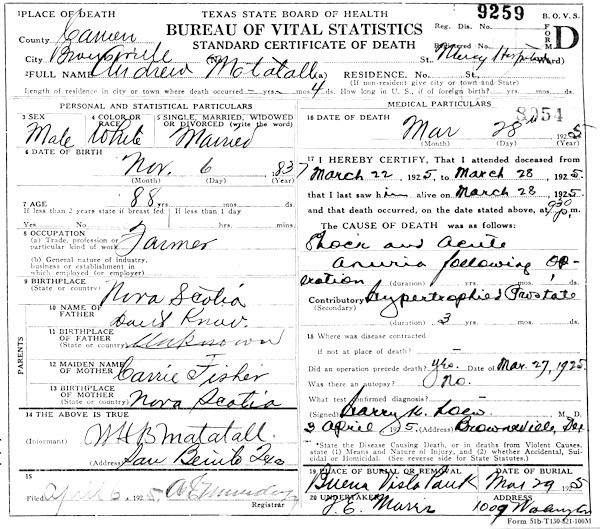 1 PLACE OF DEATH
TEXAS STATE BOARD OF HEALTH
9259
B. O. V. S.
County Cameron
BUREAU OF VITAL STATISTICS
Reg. Dis. No.
FORM D
City Brownsville
STANDARD CERTIFICATE OF DEATH
Registered No.
St. Mercy Hospital Ward)
2 FULL NAME Andrew Matatall
(a) RESIDENCE. No. St.
(If non-resident give city or town and State)
Length of residence in city or town where death occurred yrs. mos. 4 ds. How long in U. S., if of foreign birth? yrs. mos. ds.
PERSONAL AND STATISTICAL PARTICULARS
3 SEX
Male
4 COLOR OR RACE
White
5 SINGLE, MARRIED, WIDOWED OR DIVORCED (write the word)
Married
6 DATE OF BIRTH
Nov. 6 1837
(Month) (Day) (Year)
7 AGE
88
If less than 2 years state if breast fed
If less than 1 day
Yes No hrs. mins.
8 OCCUPATION
(a) Trade, profession or particular kind of work
Farmer
(b) General nature of industry, business or establishment in which employed (or employer)
9 BIRTHPLACE
(State or country)
Nova Scotia
PARENTS
10 NAME OF FATHER
Don't Know.
11 BIRTHPLACE OF FATHER
(State or country)
Unknown
12 MAIDEN NAME OF MOTHER
Carrie Fisher
13 BIRTHPLACE OF MOTHER
(State or country)
Nova Scotia
14 THE ABOVE IS TRUE
(Informant) W H B Matatall
(Address) San Benito Tex
15
Filed April 6, 1925
Registrar
MEDICAL PARTICULARS
8954
16 DATE OF DEATH
Mar 28th 1925
(Month) (Day) (Year)
17 I HEREBY CERTIFY, That I attended deceased from
March 22, 1925, to March 28, 1925
that I last saw him alive on March 28, 1925
and that death occurred, on the date stated above, at 930 p.m.
The CAUSE OF DEATH was as follows:
Shock and Acute
Anuria following op-
eration (duration) yrs. mos. ds.
Contributory Hypertrophied Prostate
(Secondary)
(duration) 3 yrs. mos. ds.
18 Where was disease contracted
if not at place of death?
Did an operation precede death? yes. Date of Mar. 27, 1925
Was there an autopsy? No.
What test confirmed diagnosis?
(Signed) Harry K. Loew M. D.
3 April 1925. (Address) Brownsville, Tex
*State the Disease Causing Death, or in deaths from Violent Causes,
state (1) Means and Nature of Injury, and (2) whether Accidental, Sui-
cidal or Homicidal. (See reverse side for State Statutes).
19 PLACE OF BURIAL OR REMOVAL
Buena Vista Park
DATE OF BURIAL
Mar 29 1925
20 UNDERTAKER
J. C. Marris
ADDRESS
1009 Washington
Form 51b-T150-821-100M